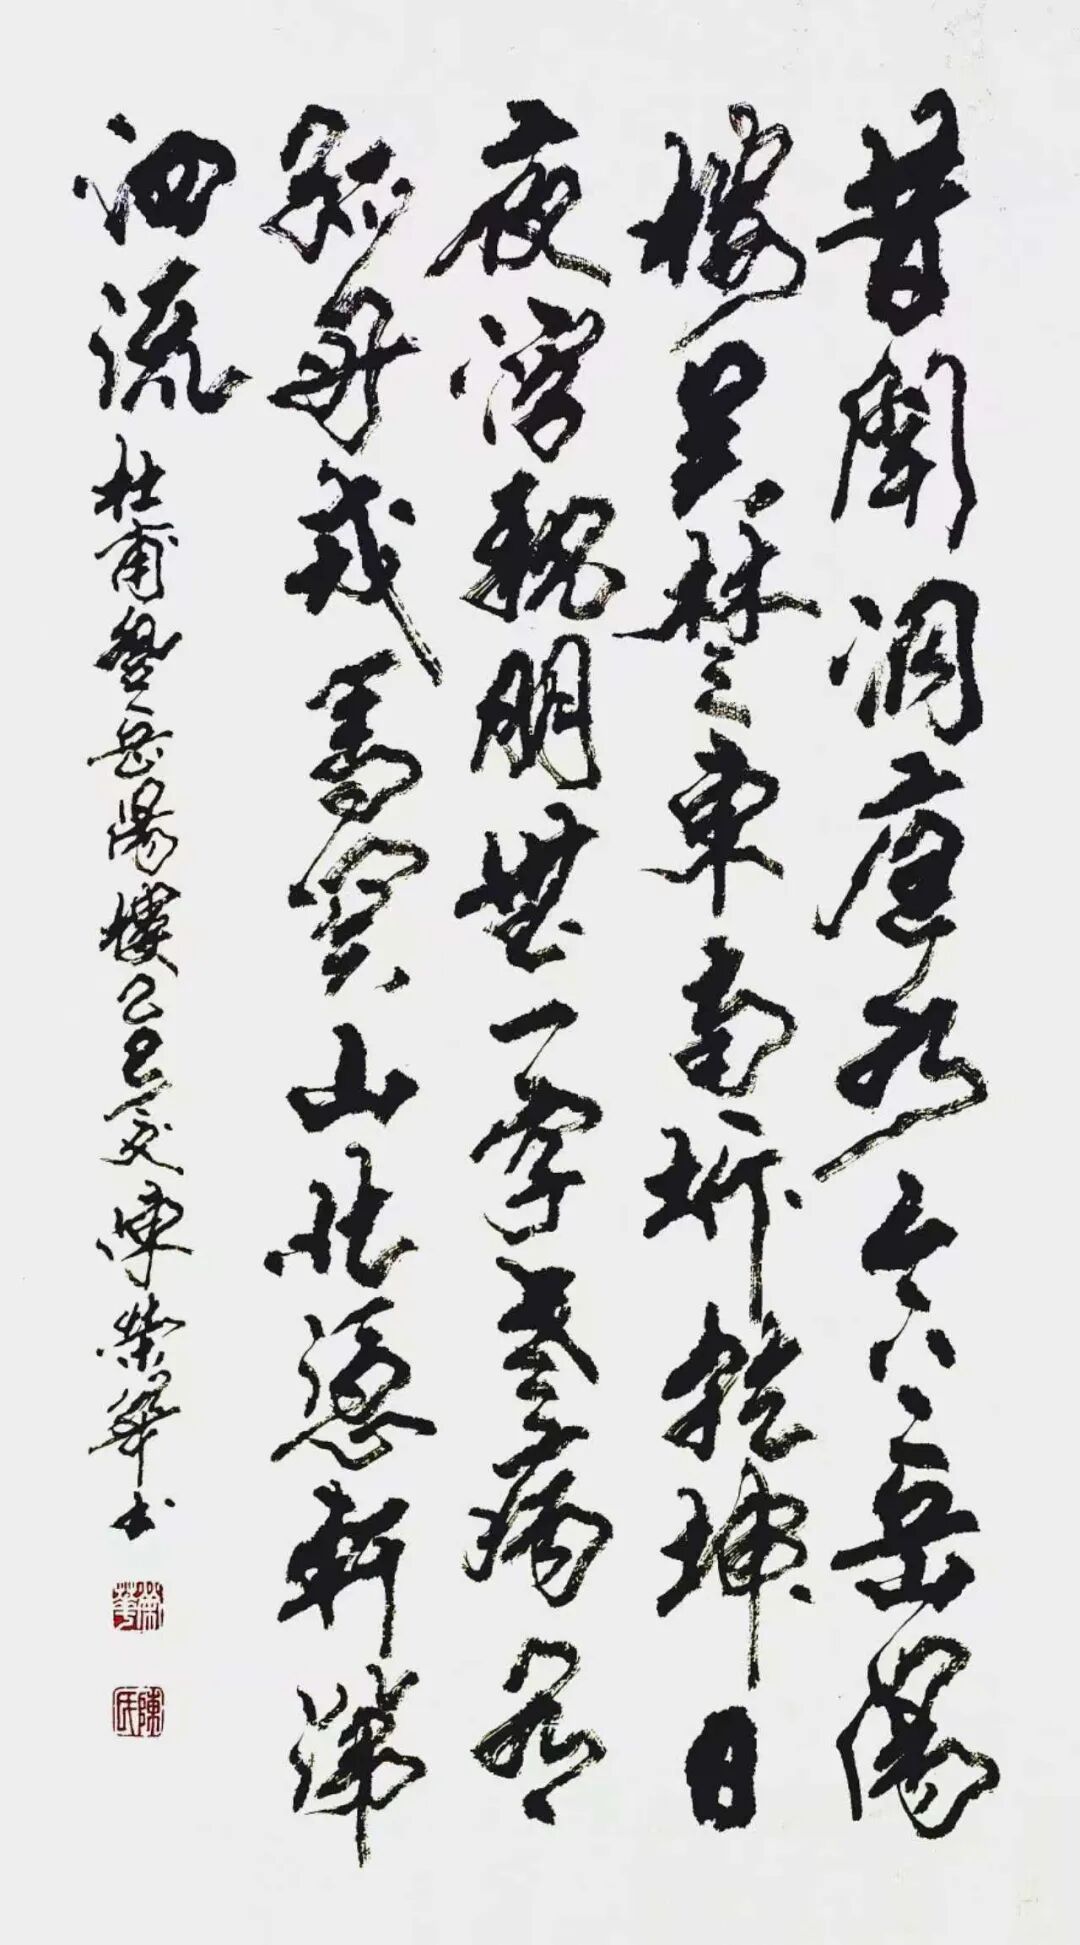 昔聞洞庭水今上岳陽
樓吳楚東南坼乾坤日
夜浮親朋無一字老病有
孤舟戎馬關山北憑軒涕
泗流 杜甫登岳陽樓乙巳夏陳榮華书
榮華
陳氏